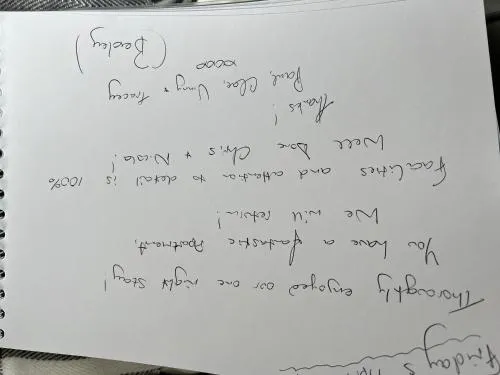 Friday 5
Thoroughly enjoyed our one night stay!
You have a fantastic Apartment,
We will return!
Facilities and attention to detail is 100%
Well done Chris + Nicola!
Thanks!
Paul, Cloe, + Tracey
xxxx
(Bexley)